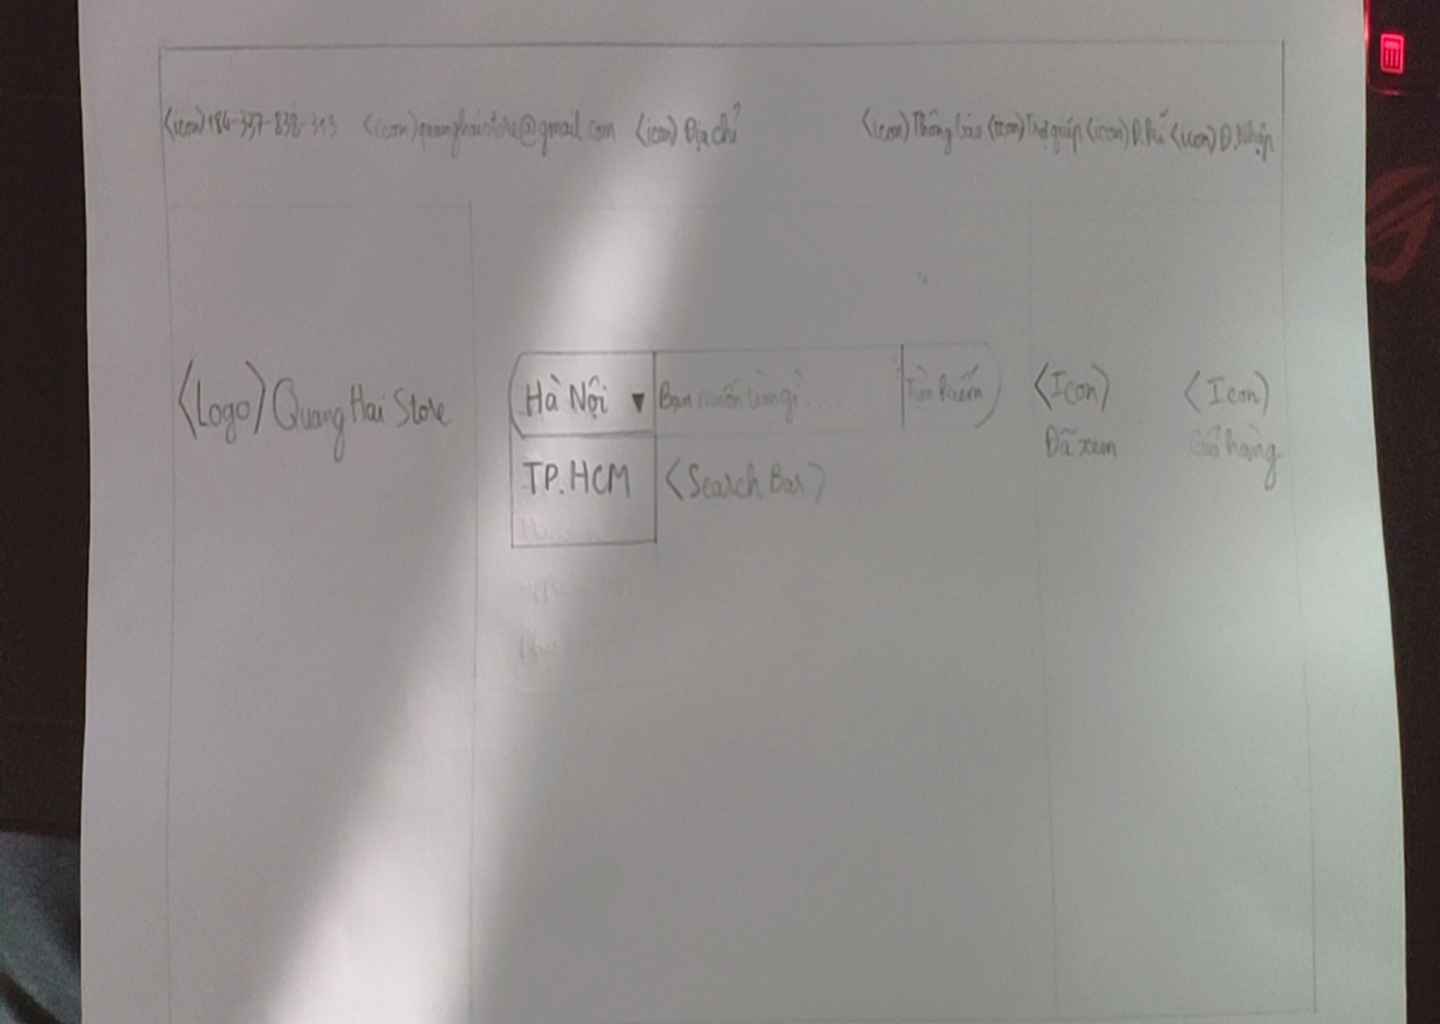 <icon> +84-337-838-313 <icon> quanghaistore@gmail.com <icon> Địa chỉ <icon> Thông báo <icon> Trợ giúp <icon> Đ.Kí <icon> Đ.Nhập
<Logo> Quang Hai Store
Hà Nội ▼ Bạn muốn tìm gì.... Tìm kiếm
<Icon> <Icon>
Đã xem Giỏ hàng
TP.HCM <Search Bar>